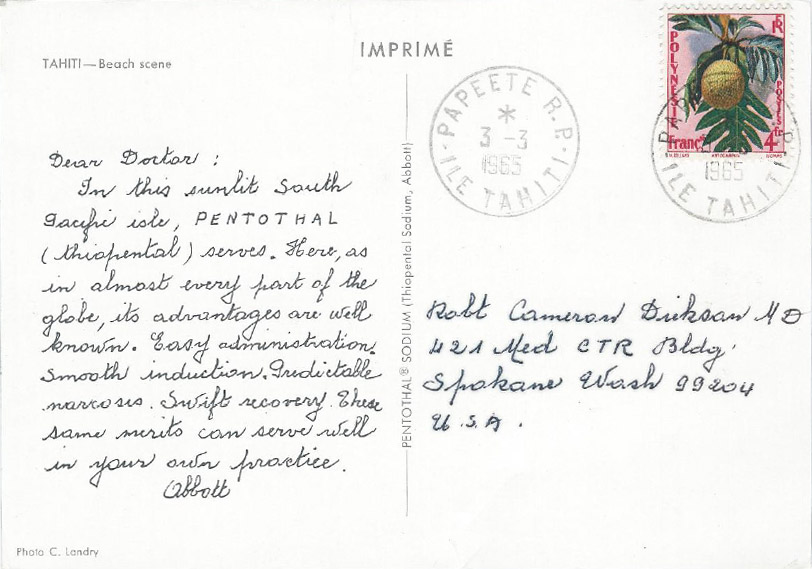 IMPRIMÉ
TAHITI—Beach scene
Dear Doctor :
In this sunlit South
Pacific isle, PENTOTHAL
(thiopental) serves. Here, as
in almost every part of the
globe, its advantages are well
known. Easy administration.
Smooth induction. Predictable
narcosis. Swift recovery. These
same merits can serve well
in your own practice.
Abbott
Photo C. Landry
PENTOTHAL® SODIUM (Thiopental Sodium, Abbott)
PAPEETE R.P.
*
3 -3
1965
ILE TAHITI
POLYNÉSIE
franç^se
RF
POSTES
4fr
1965
ILE TAHITI
Robt Cameron Dickson MD
421 Med CTR Bldg
Spokane Wash 99204
U.S.A.